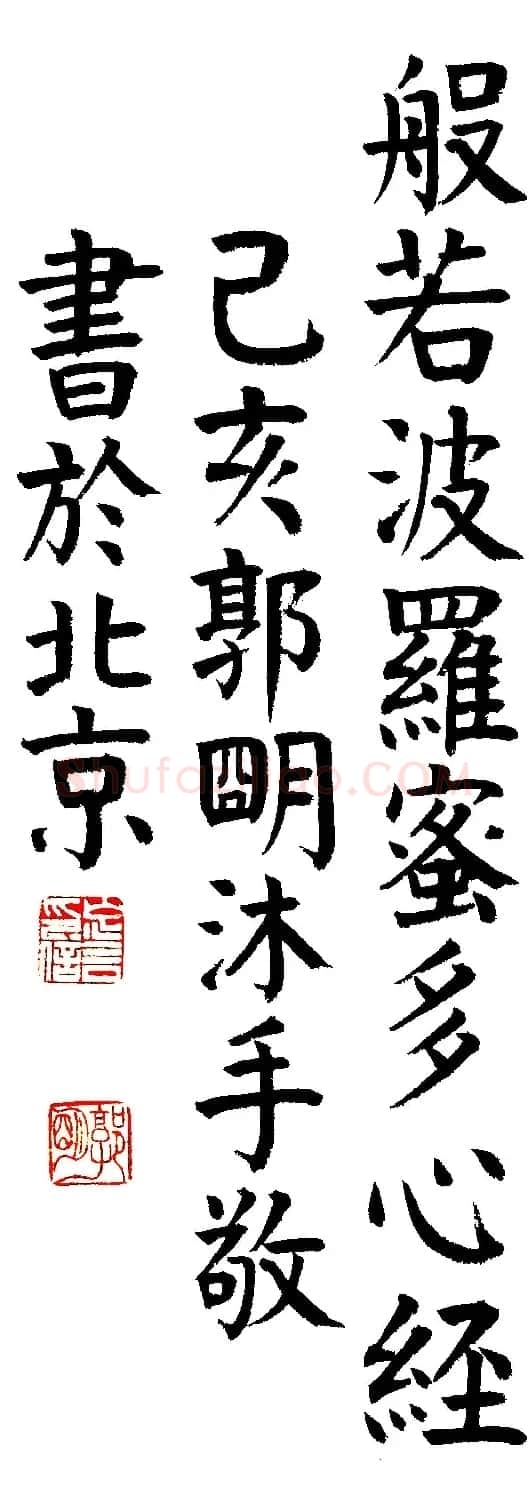 般若波羅蜜多心経
己亥郭明沐手敬
書於北京
ShufaZidao.COM
郭明